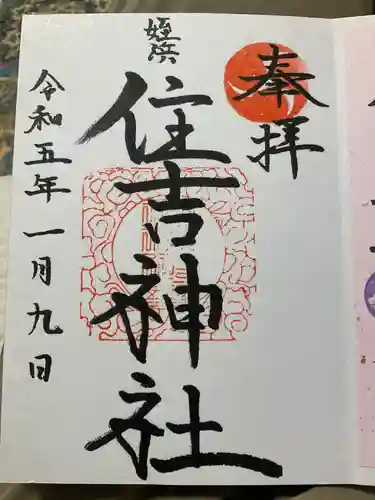 奉拝
姪浜
住吉神社
令和五年一月九日